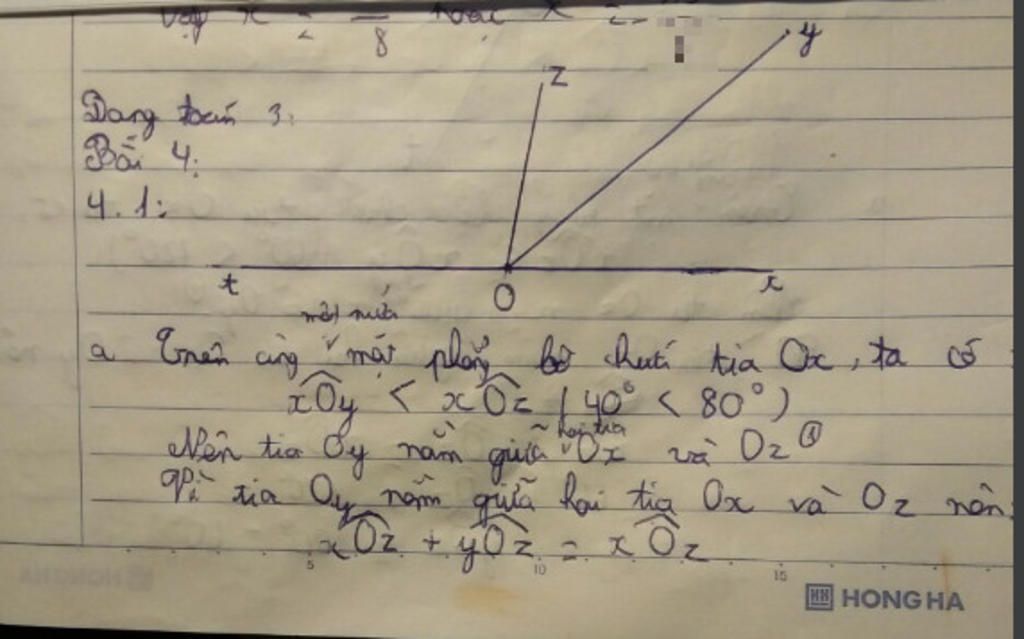 Vậy x = _ 8 hoặc x =
z
y
Dạng toán 3:
Bài 4:
4.1:
t
O
x
một nửa
a Trên cùng mặt phẳng bờ chứa tia Ox, ta có
xOy < xOz (40° < 80°)
hai tia
Nên tia Oy nằm giữa Ox và Oz ①
Vì tia Oy nằm giữa hai tia Ox và Oz nên
xOz + yOz = xOz
5 10 15
HONG HA